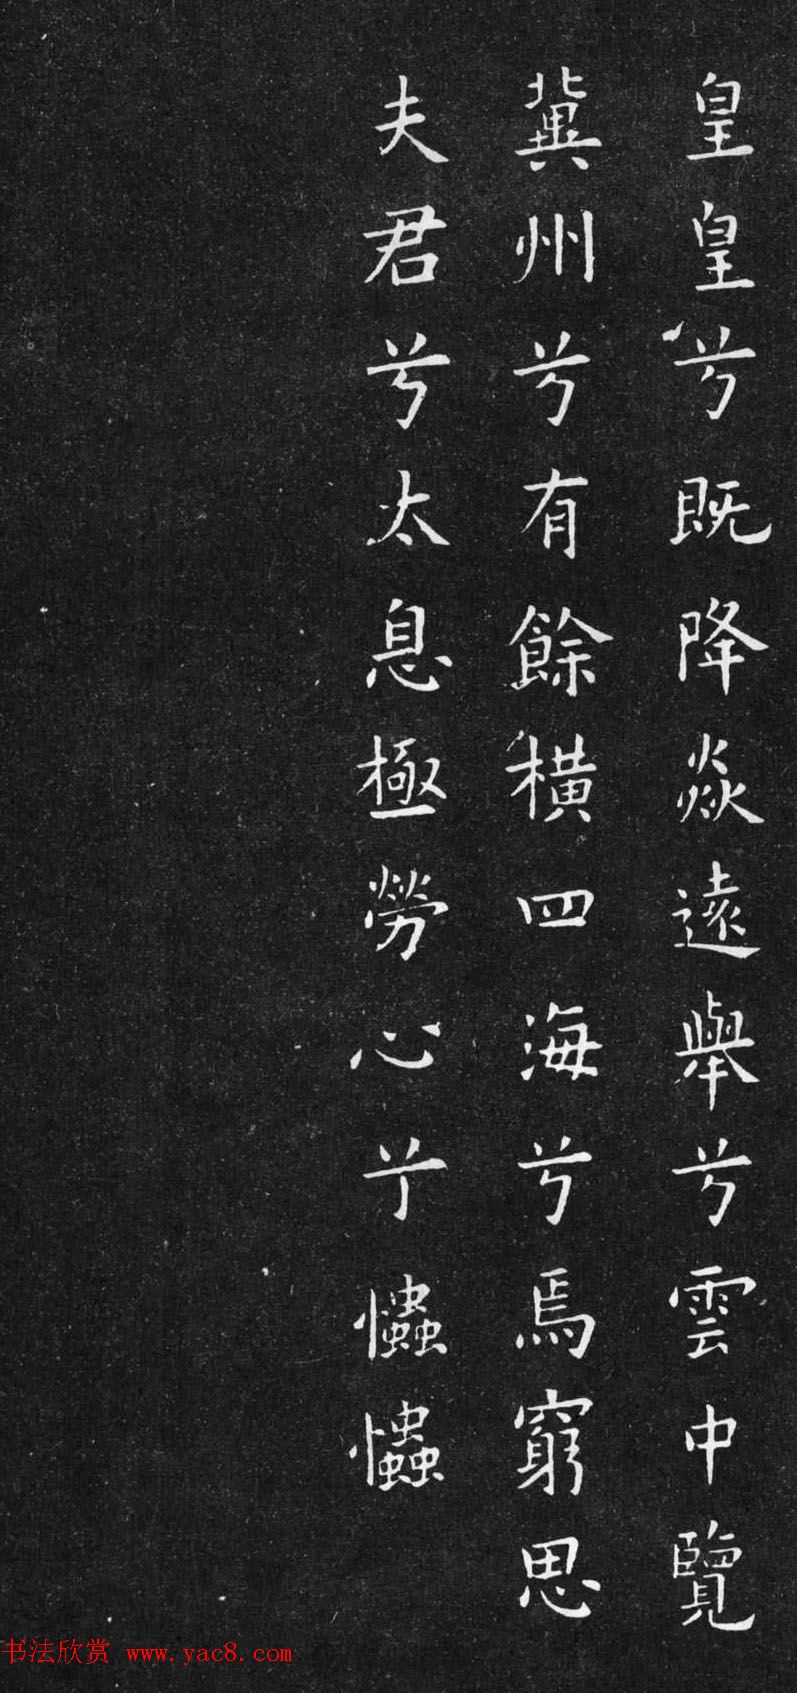 皇皇兮既降焱遠舉兮雲中覽
冀州兮有餘橫四海兮焉窮思
夫君兮太息極勞心兮忡忡
书法欣赏 www.yac8.com